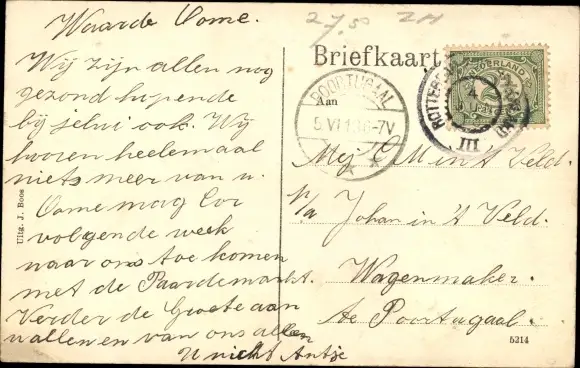 Waarde Oome.
Wij zijn allen nog
gezond hopende
bij jelui ook. Wij
hooren heelemaal
niets meer van u.
Oome mag Cor
volgende week
naar ons toe komen
met de Paardemarkt.
Verder de Groete aan
u allen en van ons allen
U nicht Antje
27,5 ZH
Briefkaart
Aan
POORTUGAAL
5.VI 13 6-7V
NEDERLAND
ROTTERDAM
4
III
Mej C M in 't Veld.
p/a Johan in 't Veld.
Wagenmaker.
te Poortugaal.
Uitg. J. Boos
5214